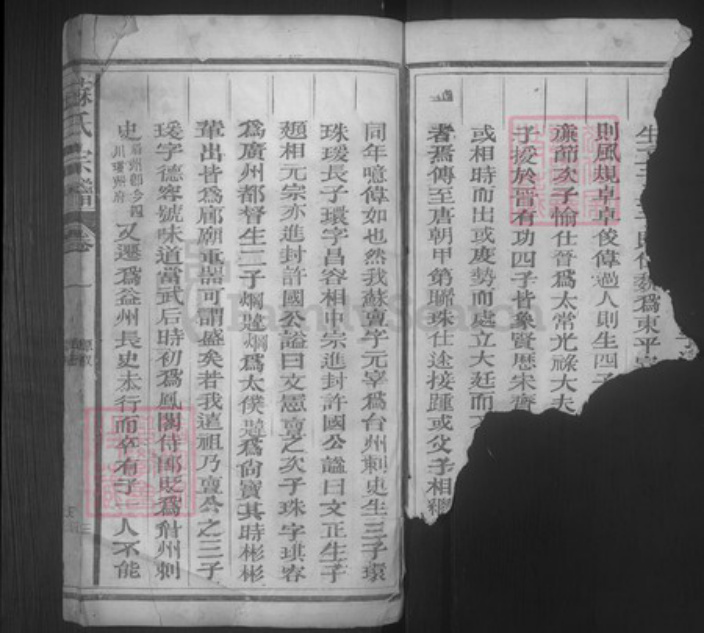 則風規卓卓俊偉過人則生四子
廉節次子愉仕晉爲太常光祿大夫
子援於晉有功四子皆象賢歷宋齊
或相時而出或度勢而處立大廷而
者焉傳至唐朝甲第聯珠仕途接踵或父子相繼
同年噫偉如也然我蘇亶字元宰爲台州刺史生三子環
珠瑗長子環字昌容相中宗進封許國公諡曰文正生子
頲相元宗亦進封許國公諡曰文憲亶之次子珠字琪容
爲廣州都督生二子
爲太僕
爲尙寶其時彬彬
輩出皆爲廊廟重器可謂盛矣若我遠祖乃亶公之三子
瑗字德容號味道當武后時初爲鳳閣侍郎貶爲眉州刺
史眉州卽今四川
州府
又遷爲益州長史未行而卒有子一人不能
蘇氏宗譜
卷一
FamilySearch